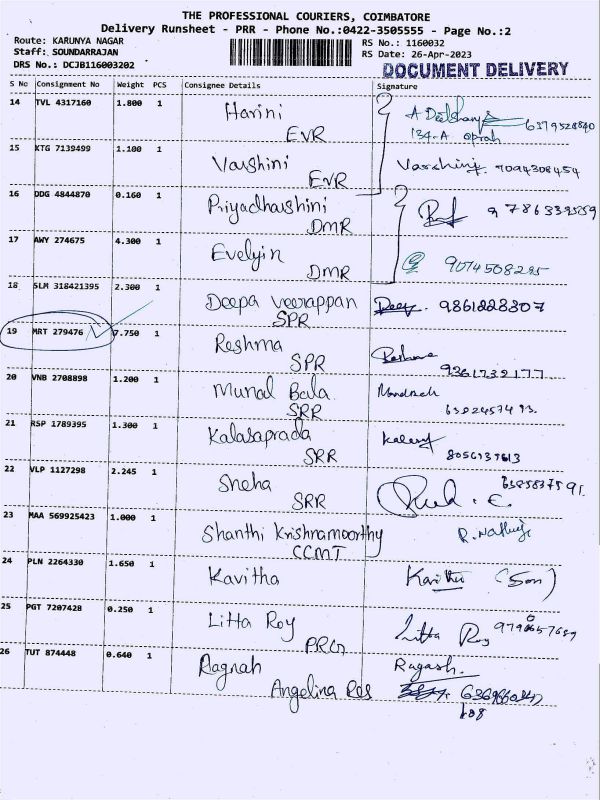 THE PROFESSIONAL COURIERS, COIMBATORE
Delivery Runsheet - PRR - Phone No.:0422-3505555 - Page No.:2
Route: KARUNYA NAGAR
RS No.: 1160032
Staff: SOUNDARRAJAN
RS Date: 26-Apr-2023
DRS No.: DCJB116003202
DOCUMENT DELIVERY
S No Consignment No Weight PCS Consignee Details Signature
14 TVL 4317160 1.800 1 Harini
EVR
134-A
6379528840
15 KTG 7139499 1.100 1 Varshini
EVR
9094308454
16 DDG 4844870 0.160 1 Priyadharshini
DMR
17 AWY 274675 4.300 1 Evelyin
DMR
18 SLM 318421395 2.300 1 Deepa Veerappan
SPR
9861228307
19 MRT 279476 7.750 1 Reshma
SPR
20 VNB 2708898 1.200 1 Munal Bala
SRR
21 RSP 1789395 1.300 1 Kalasaprada
SRR
22 VLP 1127298 2.245 1 Sneha
SRR
23 MAA 569925423 1.000 1 Shanthi Krishnamoorthy
CCMT
24 PLN 2264330 1.650 1 Kavitha (Son)
25 PGT 7207428 0.250 1 Litta Roy Litta Roy
PRGn
26 TUT 874448 0.640 1 Ragnah Ragash.
Angelina Rds